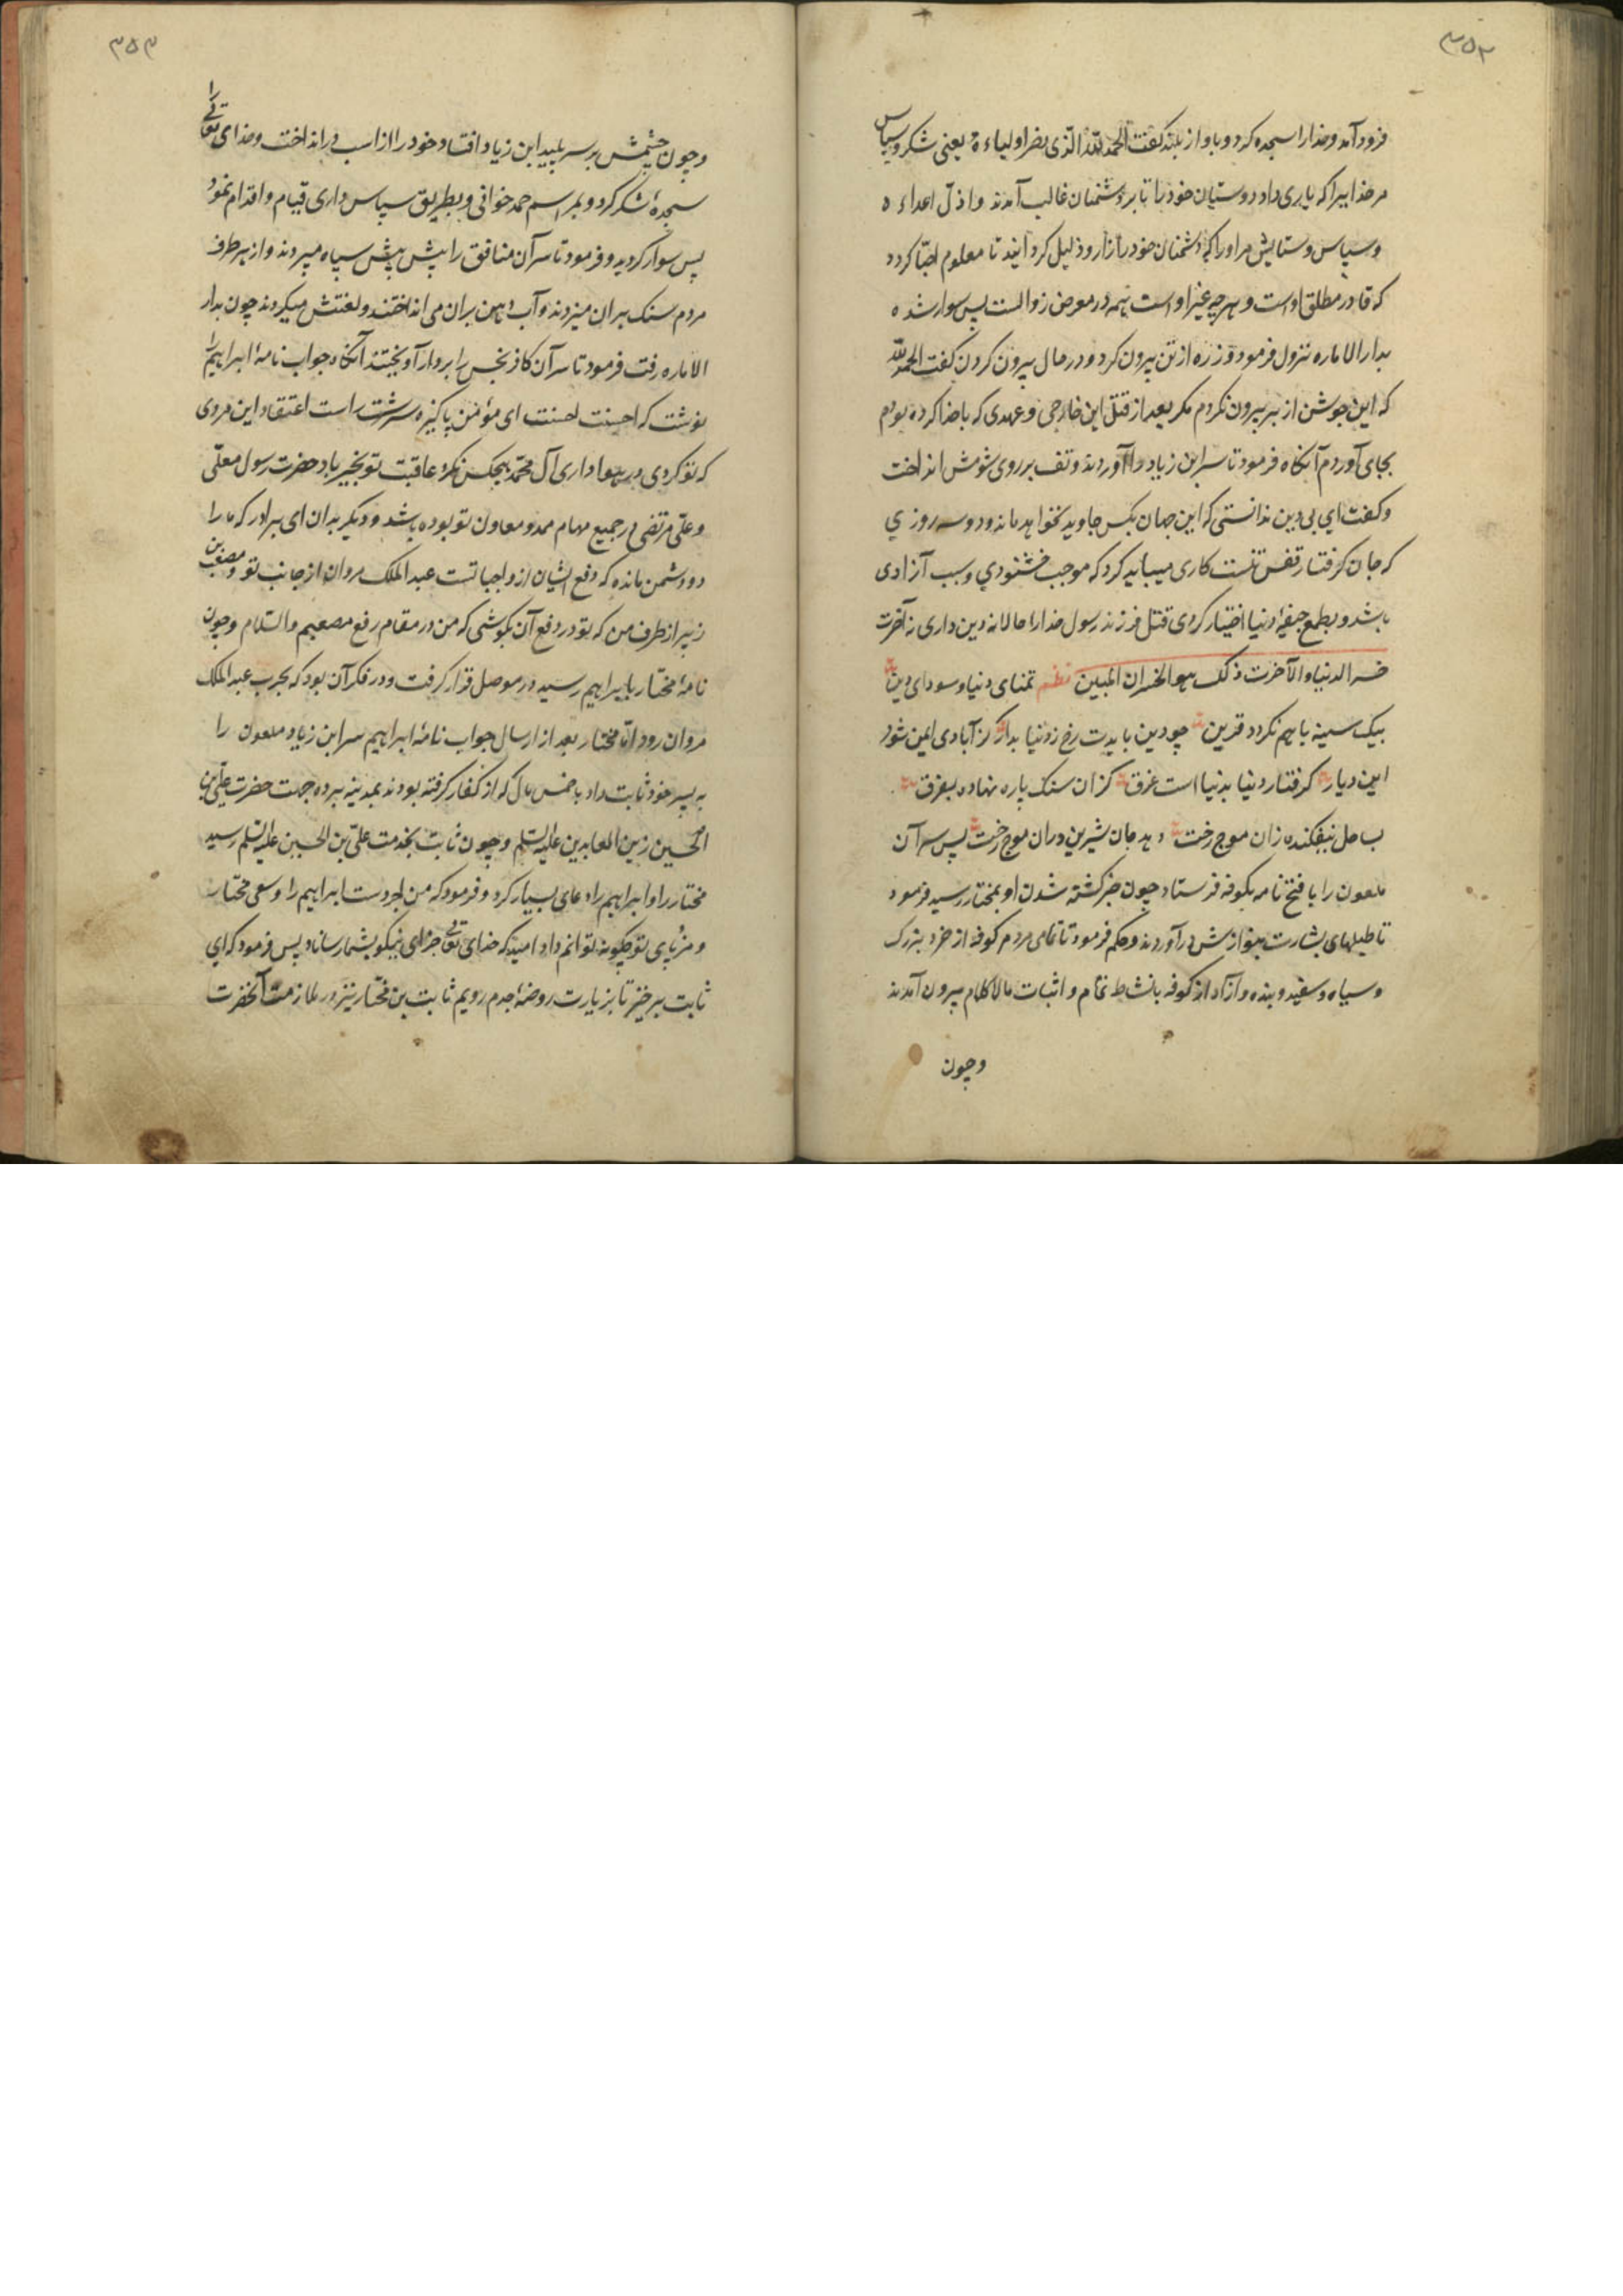 ۳۵۲
فرود آمد و خدا را سجده کرد و بآواز بلند گفت الحمد لله الذی نصر اولیاءه یعنی شکر و سپاس
مر خدایرا که یاری داد دوستان خود را تا بر دشمنان غالب آمدند و اذل اعداءه
و سپاس و ستایش مر او را که دشمنان خود را زار و ذلیل کردانید تا معلوم احبّا کردد
که قادر مطلق اوست و هر چه غیر اوست همه در معرض زوالست پس سوار شده
بدار الاماره نزول فرمود و زره از تن بیرون کرد و در حال بیرون کردن گفت الحمد لله
که این جوشن از بر بیرون نکردم مکر بعد از قتل این خارجی و عهدی که با خدا کرده بودم
بجای آوردم آنکاه فرمود تا سر ابن زیاد را آوردند و تف بر روی شومش انداخت
و گفت ای بی دین ندانستی که این جهان بکس جاوید نخواهد ماند و دو سه روزی
که جان کرفتار قفس تنست کاری میباید کرد که موجب خشنودی و سبب آزادی
باشد و بطمع جیفهٔ دنیا اختیار کردی قتل فرزند رسول خدا را حالا نه دین داری نه آخرت
خسر الدنیا و الآخرت ذلک هو الخسران المبین نظم تمنای دنیا و سودای دین
بیک سینه با هم نکردد قرین چو دین بایدت رخ ز دنیا بدار کز آبادی این شود
این دیار کرفتار دنیا بدنیا است غرق کزان سنک پاره نهاده بفرق
بساحل نیفکنده زان موج رخت دهد جان شیرین دران موج رخت پس سر آن
ملعون را با فتح نامه بکوفه فرستاد چون خبر کشته شدن او بمختار رسید فرمود
تا طبلهای بشارت بنوازش درآوردند و حکم فرمود تا تمامی مردم کوفه از خرد بزرک
و سیاه و سفید و بنده و آزاد از کوفه بانشاط تمام و اثبات مالاکلام بیرون آمدند
و چون
۳۵۳
و چون چشمش بر سر پلید ابن زیاد افتاد خود را از اسب در انداخت و خدای تعالی را
سجدهٔ شکر کرد و بمراسم حمد خوانی و بطریق سپاس داری قیام و اقدام نمود
پس سوار کردید و فرمود تا سر آن منافق را پیش پیش سپاه میبردند و از هر طرف
مردم سنک بران میزدند و آب دهن بران می انداختند و لعنتش میکردند چون بدار
الاماره رفت فرمود تا سر آن کافر نجس را بر دار آویختند آنکاه جواب نامهٔ ابراهیم را
نوشت که احسنت احسنت ای مؤمن پاکیزه سرشت راست اعتقاد این مردی
که تو کردی در هواداری آل محمد هیچکس نکرد عاقبت تو بخیر باد حضرت رسول معلّی
و علی مرتضی در جمیع مهام ممد و معاون تو بوده باشد و دیکر بدان ای برادر که ما را
دو دشمن مانده که دفع ایشان از واجباتست عبد الملک مروان از جانب تو و مصعب بن
زبیر از طرف من که تو در دفع آن بکوشی که من در مقام رفع مصعبیم و السلام و چون
نامهٔ مختار بابراهیم رسید در موصل قرار کرفت و در فکر آن بود که بحرب عبد الملک
مروان رود امّا مختار بعد از ارسال جواب نامهٔ ابراهیم سر ابن زیاد ملعون را
به پسر خود ثابت داد با خمس مال که از کفار کرفته بودند بمدینه برده جهت حضرت علی بن
الحسین زین العابدین علیه السلم و چون ثابت بخدمت علی بن الحسین علیه السلم رسید
مختار را و ابراهیم را دعای بسیار کرد و فرمود که من اجر دست ابراهیم را و سعی مختار
و مزد پای تو چکونه توانم داد امید که خدای تعالی جزای نیکو بشما رساناد پس فرمود که ای
ثابت برخیز تا بزیارت روضهٔ جدم رویم ثابت بن مختار نیز در ملازمت آنحضرت